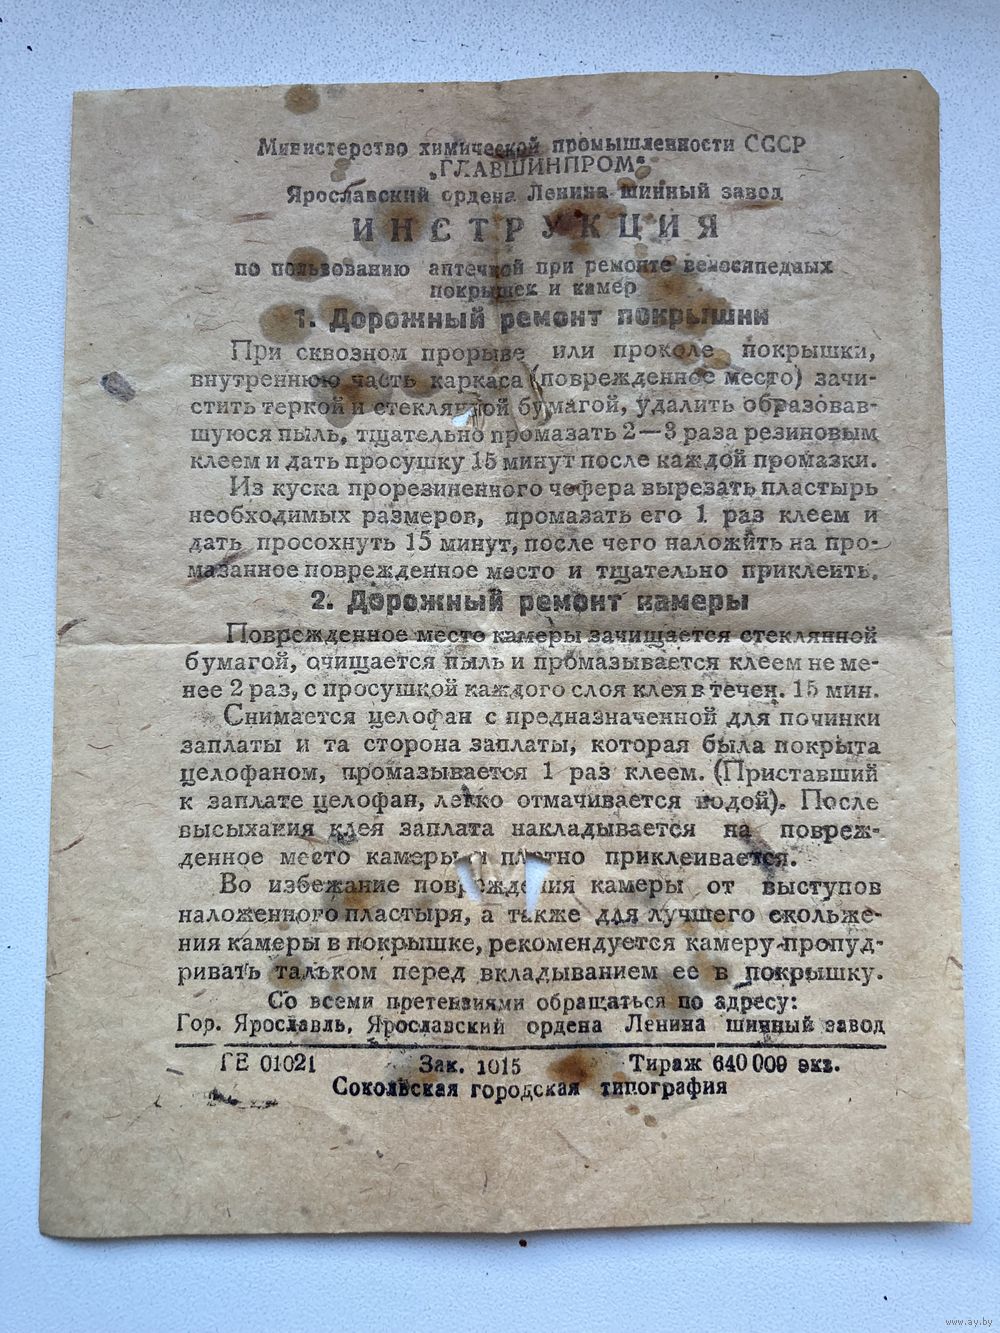 Министерство химической промышленности СССР
„ГЛАВШИНПРОМ“
Ярославский ордена Ленина шинный завод
ИНСТРУКЦИЯ
по пользованию аптечкой при ремонте велосипедных
покрышек и камер
1. Дорожный ремонт покрышки
При сквозном прорыве или проколе покрышки,
внутреннюю часть каркаса (поврежденное место) зачи-
стить теркой и стеклянной бумагой, удалить образовав-
шуюся пыль, тщательно промазать 2—3 раза резиновым
клеем и дать просушку 15 минут после каждой промазки.
Из куска прорезиненного чефера вырезать пластырь
необходимых размеров, промазать его 1 раз клеем и
дать просохнуть 15 минут, после чего наложить на про-
мазанное поврежденное место и тщательно приклеить.
2. Дорожный ремонт камеры
Поврежденное место камеры зачищается стеклянной
бумагой, очищается пыль и промазывается клеем не ме-
нее 2 раз, с просушкой каждого слоя клея в течен. 15 мин.
Снимается целофан с предназначенной для починки
заплаты и та сторона заплаты, которая была покрыта
целофаном, промазывается 1 раз клеем. (Приставший
к заплате целофан, легко отмачивается водой). После
высыхания клея заплата накладывается на повреж-
денное место камеры и плотно приклеивается.
Во избежание повреждения камеры от выступов
наложенного пластыря, а также для лучшего скольже-
ния камеры в покрышке, рекомендуется камеру пропуд-
ривать тальком перед вкладыванием ее в покрышку.
Со всеми претензиями обращаться по адресу:
Гор. Ярославль, Ярославский ордена Ленина шинный завод
ГЕ 01021 Зак. 1015 Тираж 640 000 экз.
Сокольская городская типография
www.ay.by